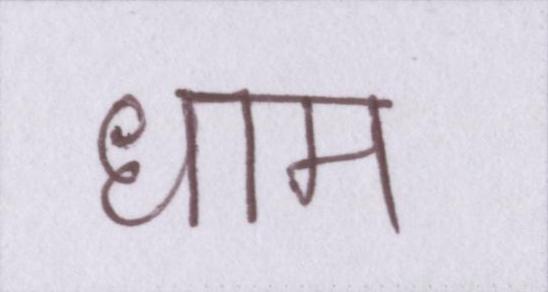 धाम